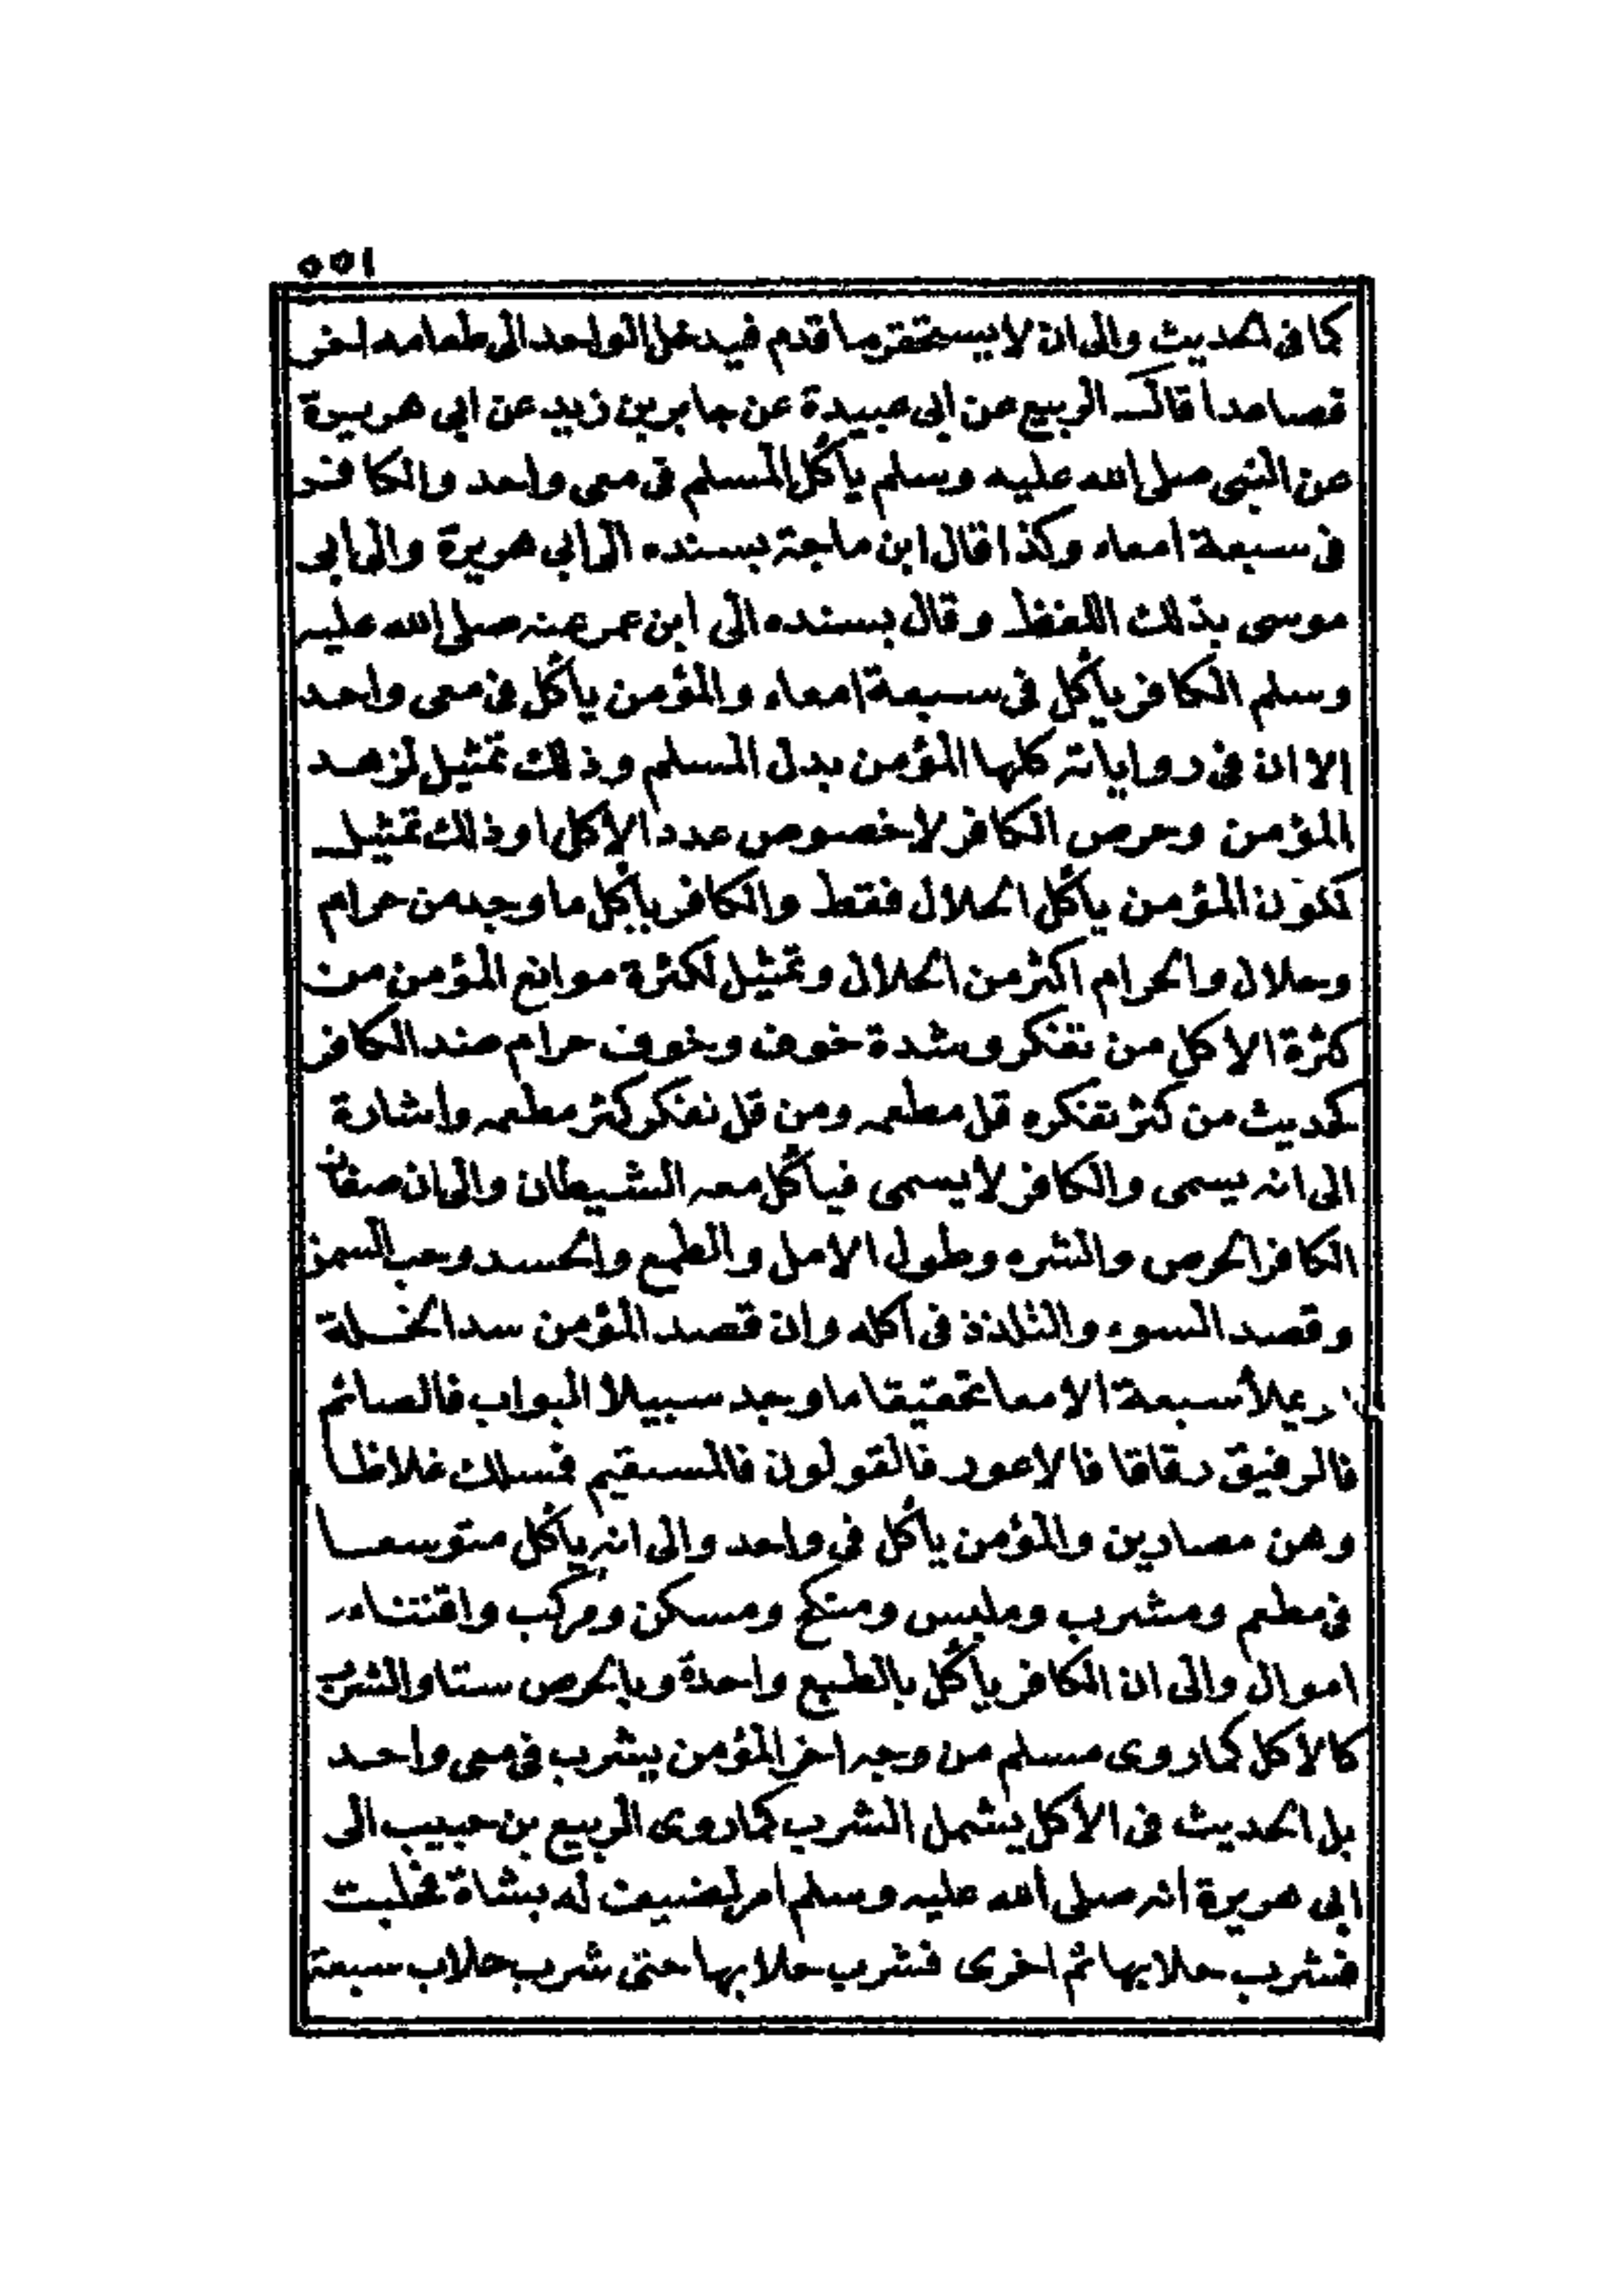 ٥٥١
كما فى الحديث والى ان لا يستحقر ما قدم فيدخل الواحد الى طعامه اخر
فصاعدا قال الربيع عن ابى عبيدة عن جابر بن زيد عن ابي هريرة
عن النبى صلى الله عليه وسلم يأكل المسلم فى معى واحد والكافر
فى سبعة امعاء وكذا قال ابن ماجة بسنده الى ابي هريرة والى ابى
موسى بذلك اللفظ وقال بسنده الى ابن عمر عنه صلى الله عليه
وسلم الكافر يأكل فى سبعة امعاء والمؤمن يأكل فى معى واحد
الا ان فى رواياته كلها المؤمن بدل المسلم وذلك تمثيل لزهد
المؤمن وحرص الكافر لا خصوص عدد الاكل او ذلك تمثيل
لكون المؤمن يأكل الحلال فقط والكافر يأكل ما وجد من حرام
وحلال والحرام اكثر من الحلال وتمثيل لكثرة موانع المؤمن من
كثرة الاكل من تفكر وشدة خوف وخوف حرام ضد الكافر
لحديث من كثر تفكره قل مطعمه ومن قل تفكر كثر مطعمه واشارة
الى انه يسمى والكافر لا يسمى فيأكل معه الشيطان والى ان صفات
الكافر الحرص والشره وطول الامل والطمع والحسد وحب السمن
وقصد السوء والتلذذ فى اكله وان قصد المؤمن سد الخلة
يملأ سبعة الامعا تحقيقا ما وجد سبيلا البواب فالصائم
فالرقيق دقاقا فالاعور فالقولون فالمستقيم فسلك غلاظا
وهن مصارين والمؤمن يأكل فى واحد والى انه يأكل متوسعا
فى مطعم ومشرب وملبس ومنكح ومسكن ومركب واقتناء
اموال والى ان الكافر يأكل بالطبع واحدة وبالحرص ستا والشرب
كالاكل كما روى مسلم من وجه اخر المؤمن يشرب فى معى واحد
بل الحديث فى الاكل يشمل الشرب كما روى الربيع بن حبيب الى
ابى هريرة انه صلى الله عليه وسلم امر لضيف له بشاة فحلبت
فشرب حلابها ثم اخرى فشرب حلابها حتى شرب حلاب سبعة